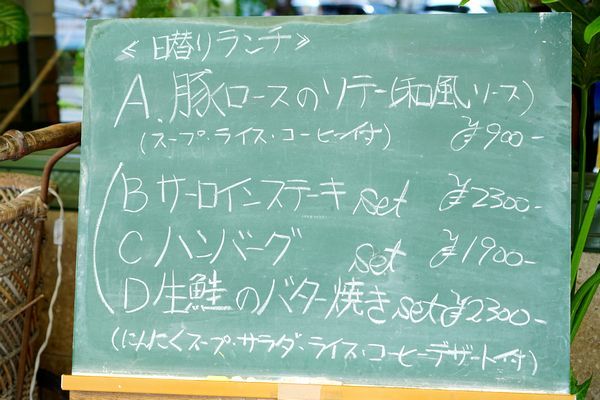 ≪日替りランチ≫
A. 豚ロースのソテー(和風ソース)
(スープ・ライス・コーヒー付)  ¥900-
B サーロインステーキ set ¥2300-
C ハンバーグ set ¥1900-
D 生鮭のバター焼き set ¥2300-
(にんにくスープ・サラダ・ライス・コーヒーデザート付)